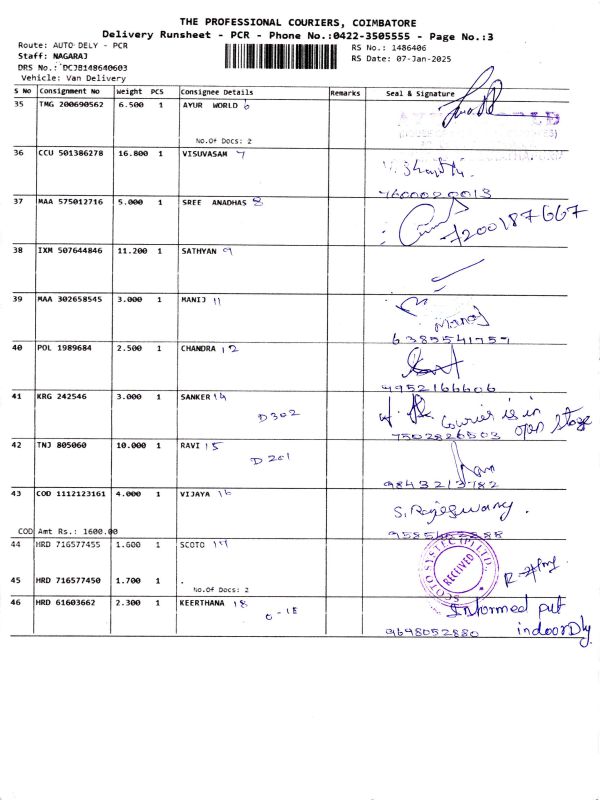 THE PROFESSIONAL COURIERS, COIMBATORE
Delivery Runsheet - PCR - Phone No.:0422-3505555 - Page No.:3
Route: AUTO DELY - PCR
Staff: NAGARAJ
DRS No.: DCJB148640603
Vehicle: Van Delivery
RS No.: 1486406
RS Date: 07-Jan-2025
S No Consignment No Weight PCS Consignee Details Remarks Seal & Signature
35 TMG 200690562 6.500 1 AYUR WORLD 6
No.Of Docs: 2
36 CCU 501386278 16.800 1 VISUVASAM 7
37 MAA 575012716 5.000 1 SREE ANADHAS 8
7200187667
38 IXM 507644846 11.200 1 SATHYAN 9
39 MAA 302658545 3.000 1 MANIJ 11
Manoj
6385541757
40 POL 1989684 2.500 1 CHANDRA 12
9952166606
41 KRG 242546 3.000 1 SANKER 14
D302
Courier is in
open stage
7502826503
42 TNJ 805060 10.000 1 RAVI 15
D201
9843213782
43 COD 1112123161 4.000 1 VIJAYA 16
S. Rajeswary.
COD Amt Rs.: 1600.00
44 HRD 716577455 1.600 1 SCOTO 17
SCOTO SYSTEC (P) LTD.
RECEIVED
45 HRD 716577450 1.700 1 .
No.Of Docs: 2
46 HRD 61603662 2.300 1 KEERTHANA 18
0-18
Informed put
indoor Dly
9698052880